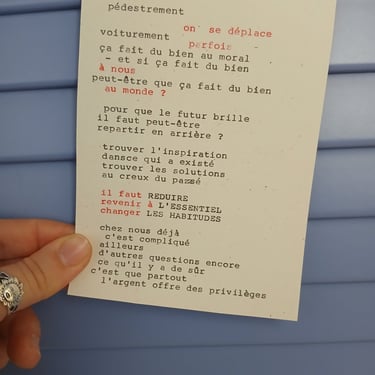 pédestrement
on se déplace
voiturement parfois
ça fait du bien au moral
- et si ça fait du bien
à nous
peut-être que ça fait du bien
au monde ?
pour que le futur brille
il faut peut-être
repartir en arrière ?
trouver l'inspiration
dansce qui a existé
trouver les solutions
au creux du pazsé
il faut REDUIRE
revenir à L'ESSENTIEL
changer LES HABITUDES
chez nous déjà
c'est compliqué
ailleurs
d'autres questions encore
ce qu'il y a de sûr
c'est que partout
l'argent offre des privilèges